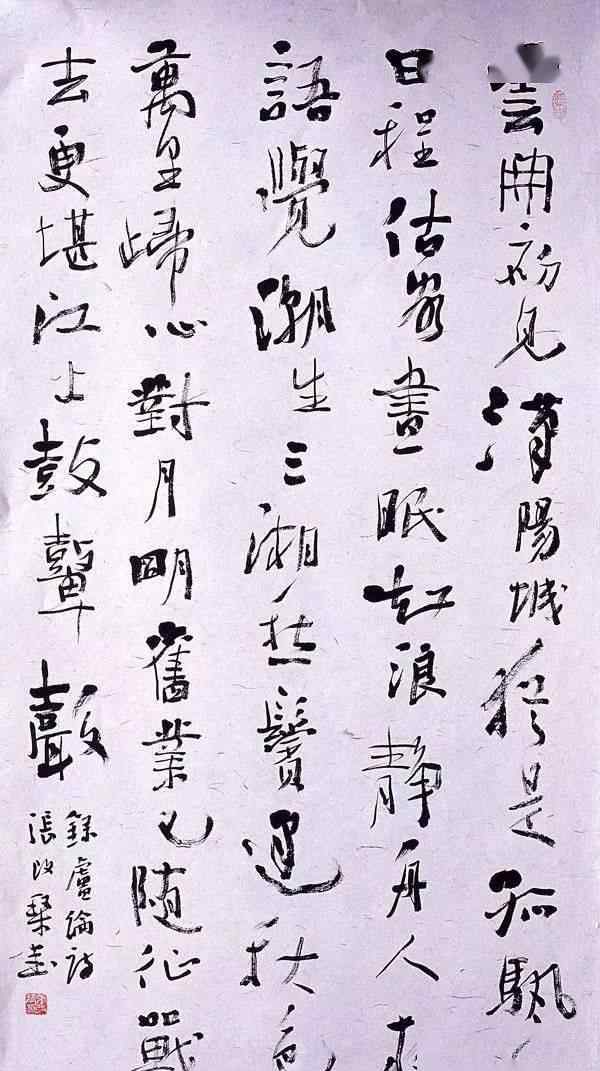 雲開初見漢陽城猶是孤颿
日程估客晝眠知浪靜舟人夜
語覺潮生三湘愁鬢遇秋色
萬里歸心對月明舊業已隨征戰
去更堪江上鼓鼙聲
錄盧綸詩
張改琴書